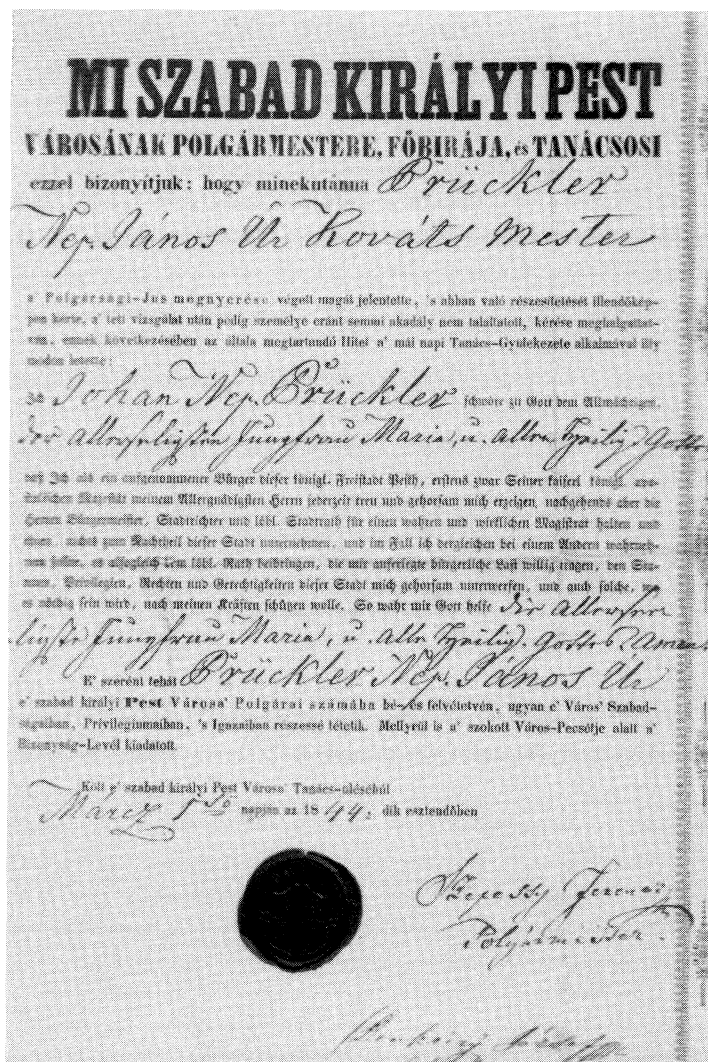 MI SZABAD KIRÁLYI PEST
VÁROSÁNAK POLGÁRMESTERE, FŐBIRÁJA, és TANÁCSOSI
ezzel bizonyítjuk: hogy minekutánna Prückler
Nep. János Úr Kováts mester
a' Polgársági-Jus megnyerése végett magát jelentette, 's abban való részesítetését illendőkép-
pen kérte, a' tett vizsgálat után pedig személye eránt semmi akadály nem találtatott, kérése meghalgattat-
ván, ennek következésében az általa megtartandó Hitet a' mái napi Tanács-Gyülekezete alkalmával illy
módon letette:
Ich Johan Nep. Prückler schwöre zu Gott dem Allmächtigen,
der allerseligsten Jungfrau Maria, u. allen Heilig. Gottes
daß Ich als ein aufgenommener Bürger dieser königl. Freistadt Pesth, erstens zwar Seiner kaiserl königl. apo-
stolischen Majestät meinem Allergnädigsten Herrn jederzeit treu und gehorsam mich erzeigen, nachgehends aber die
Herren Bürgermeister, Stadtrichter und löbl. Stadtrath für einen wahren und wirklichen Magistrat halten und
ehren, nichts zum Nachtheil dieser Stadt unternehmen, und im Fall ich dergleichen bei einem Andern wahrneh-
men sollte, es alsogleich dem löbl. Rath beibringen, die mir auferlegte bürgerliche Last willig tragen, den
Privilegien, Rechten und Gerechtigkeiten dieser Stadt mich gehorsam unterwerfen, und auch solche, wo
es nöthig sein wird, nach meinen Kräften schützen wolle. So wahr mir Gott helfe die allerse-
ligste Jungfrau Maria, u. alle Heilig. Gottes Amen
E' szerént tehát Prückler Nep. János Úr
e' szabad királyi Pest Városa' Polgárai számába bé- és felvétetvén, ugyan e' Város' Szabad-
ságaiban, Privilegiumaiban, 's Igazaiban részessé tétetik. Mellyrül is a' szokott Város-Pecsétje alatt a'
Bizonyság-Levél kiadatott.
Költ e' szabad királyi Pest Városa' Tanács-üléséből
Márcz 1ső napján az 1844. dik esztendőben
Szepessy Ferencz
Polgármester